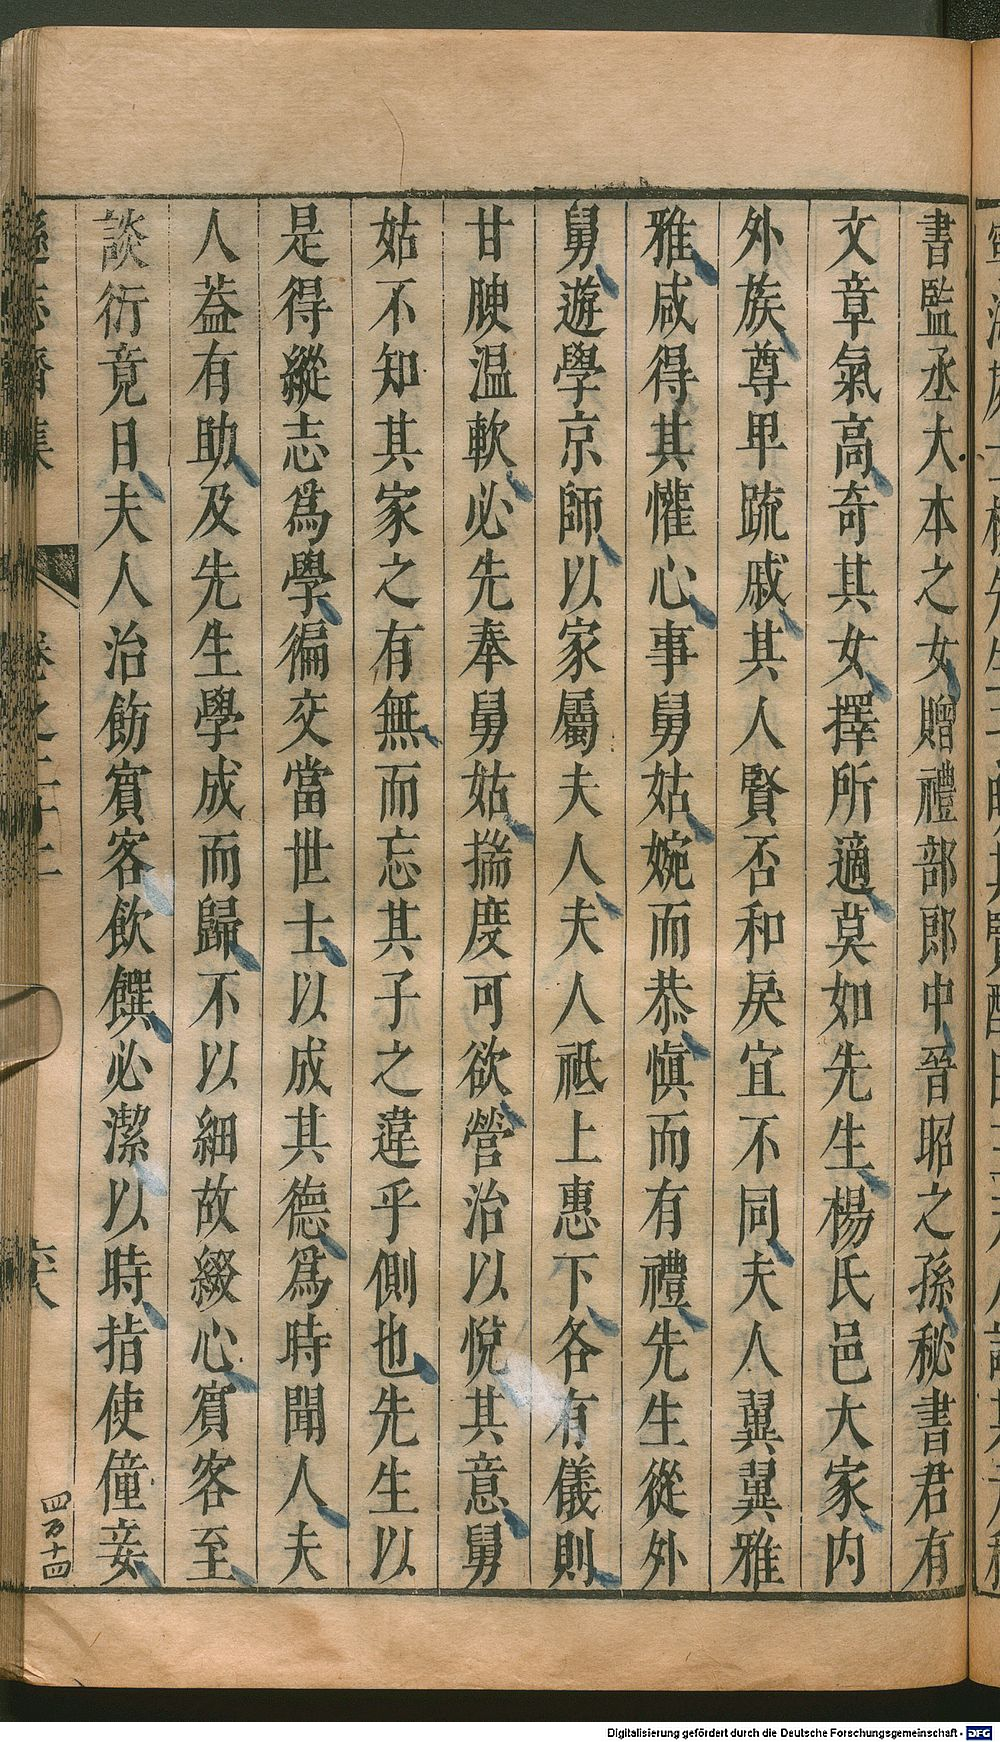 書監丞大本之女贈禮部郎中晉昭之孫秘書君有
文章氣高奇其女擇所適莫如先生楊氏邑大家内
外族尊卑疏戚其人賢否和戾宜不同夫人翼翼雅
雅咸得其懽心事舅姑婉而恭慎而有禮先生從外
舅遊學京師以家屬夫人夫人祗上惠下各有儀則
甘腴温軟必先奉舅姑揣度可欲營治以悅其意舅
姑不知其家之有無而忘其子之違乎側也先生以
是得縱志爲學徧交當世士以成其德爲時聞人夫
人葢有助及先生學成而歸不以細故綴心賓客至
談衍竟日夫人治飭賓客飲饌必潔以時指使僮妾
遜志齋集
卷之二十二
六八
四万十四
Digitalisierung gefördert durch die Deutsche Forschungsgemeinschaft - DFG